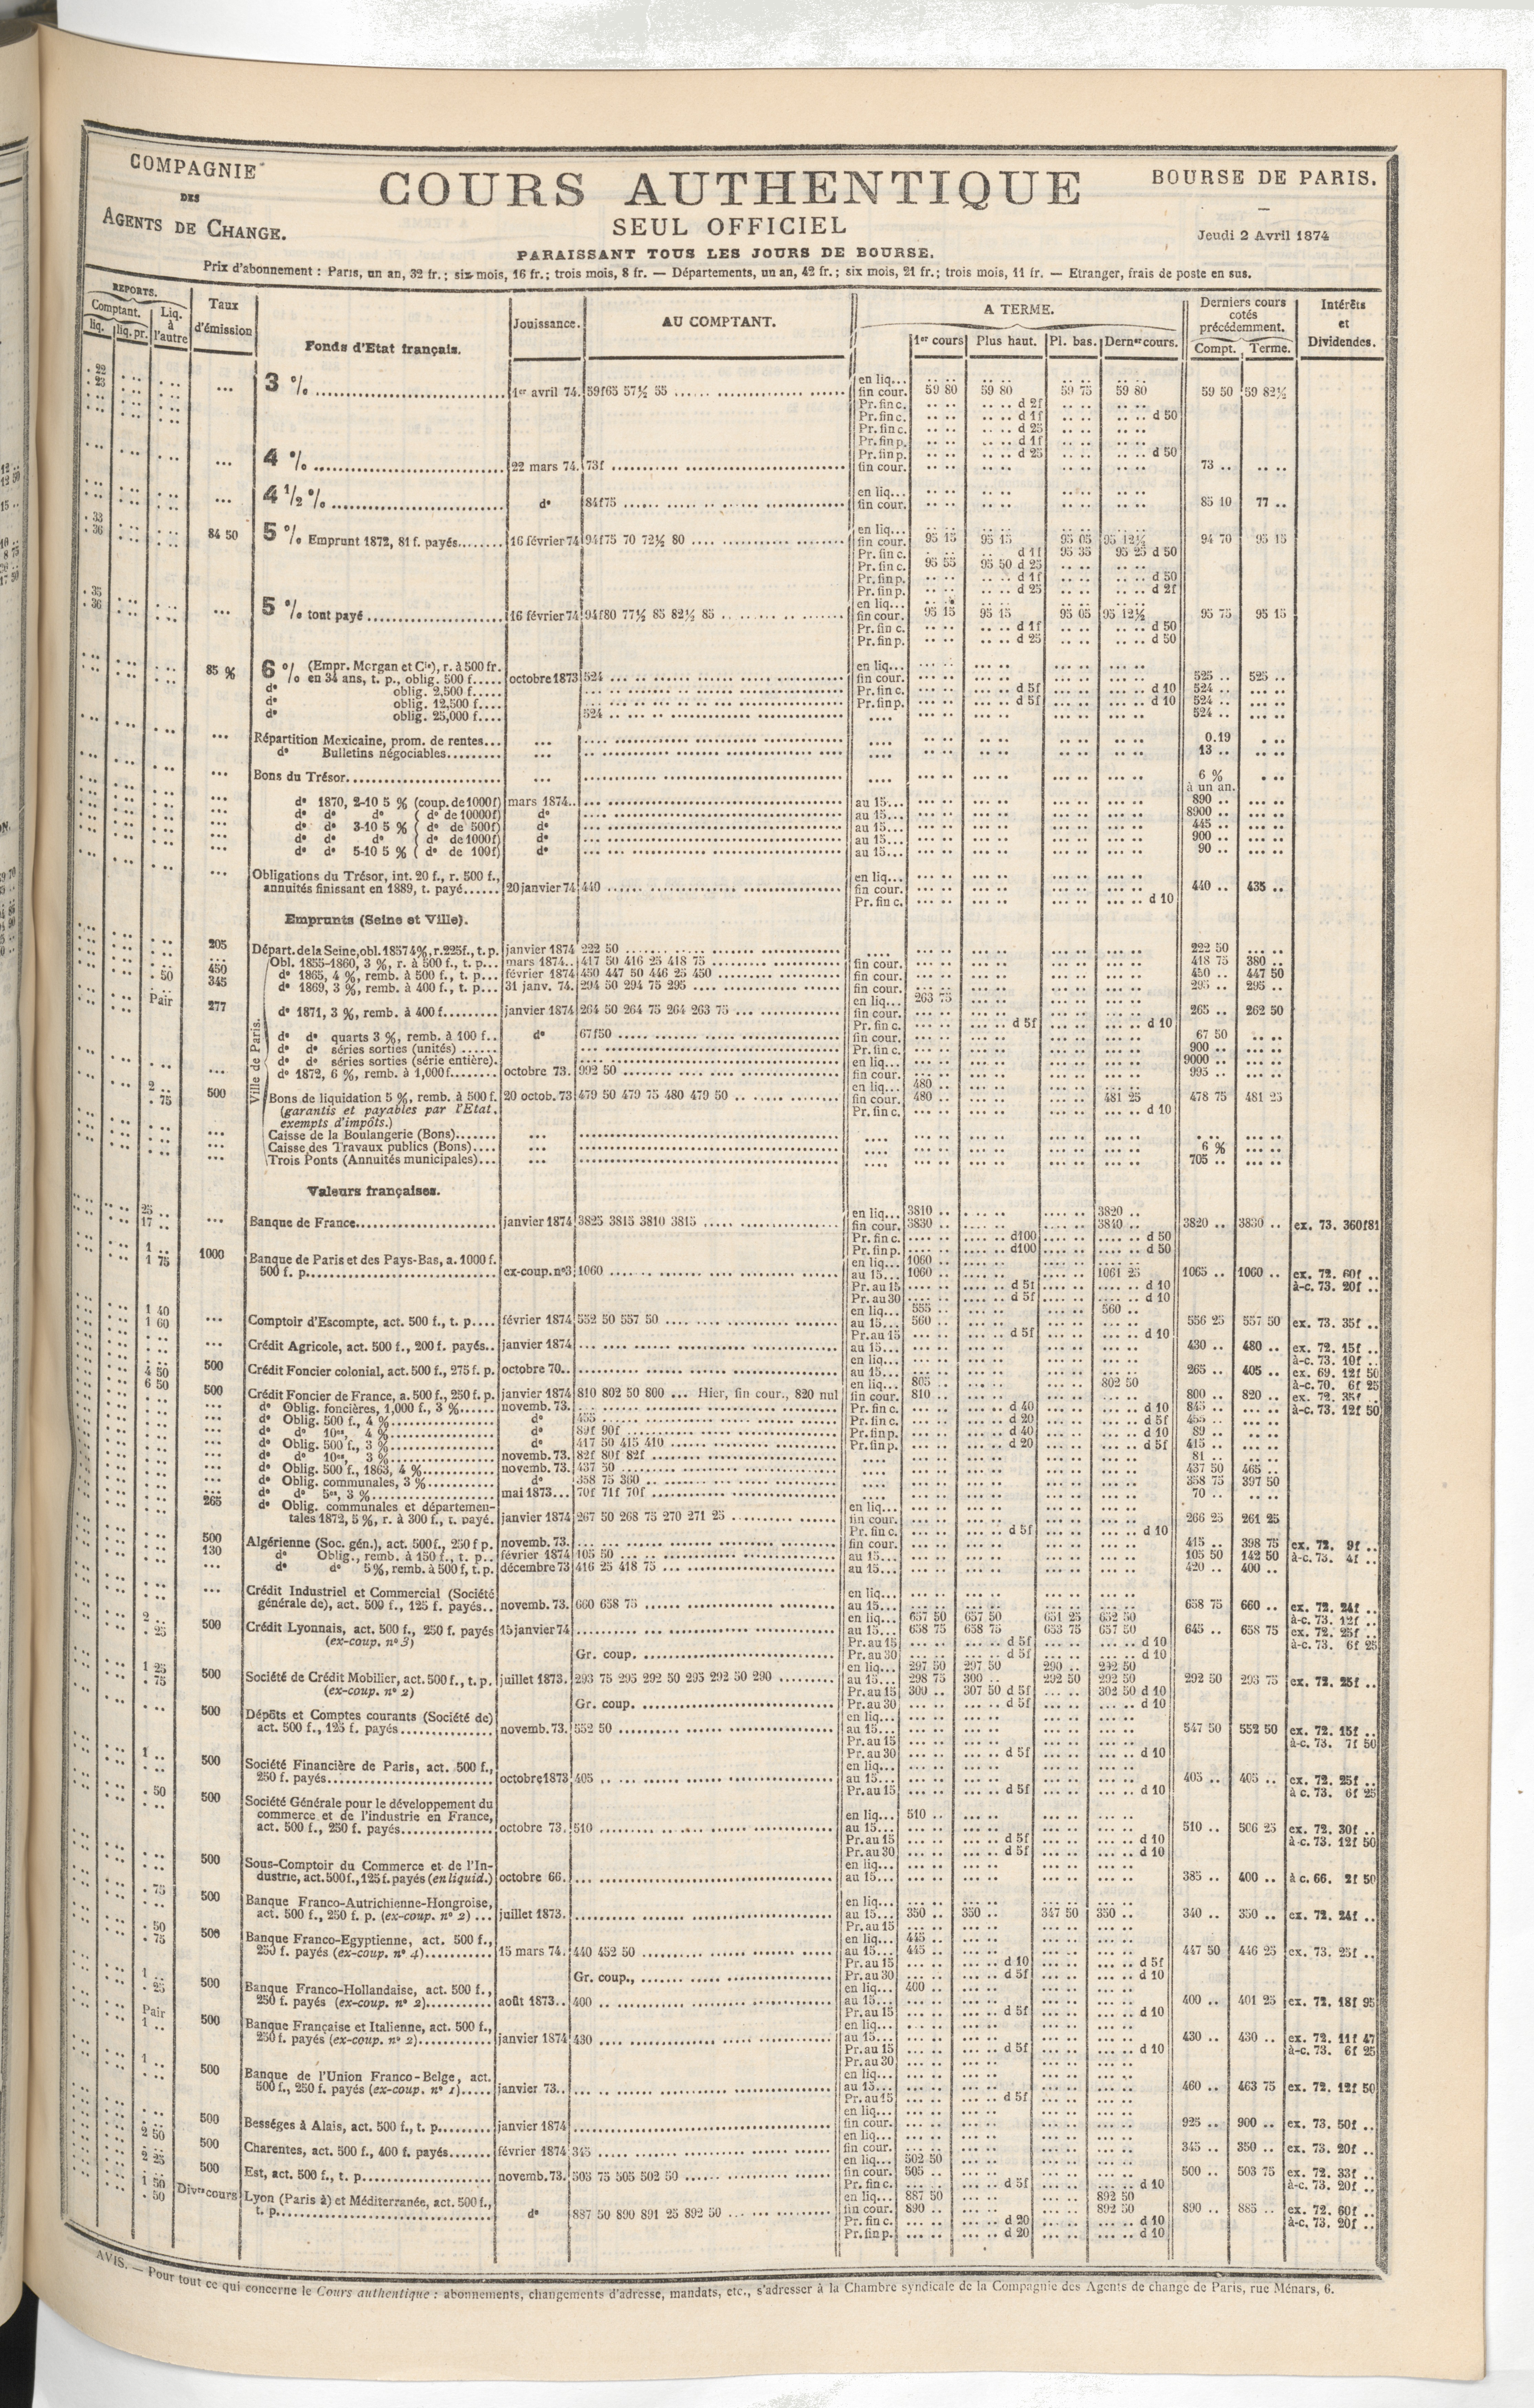 COMPAGNIE
DES
AGENTS DE CHANGE.
COURS AUTHENTIQUE
SEUL OFFICIEL
PARAISSANT TOUS LES JOURS DE BOURSE.
BOURSE DE PARIS.
Jeudi 2 Avril 1874
Prix d'abonnement : Paris, un an, 32 fr.; six mois, 16 fr.; trois mois, 8 fr. — Départements, un an, 42 fr.; six mois, 21 fr.; trois mois, 11 fr. — Etranger, frais de poste en sus.
REPORTS.
Comptant.
liq. liq. pr.
Liq. à l'autre
Taux d'émission
Fonds d'Etat français.
Jouissance.
AU COMPTANT.
A TERME.
1er cours Plus haut. Pl. bas. Derner cours.
Derniers cours cotés précédemment.
Compt. Terme.
Intérêts et Dividendes.
3 % 1er avril 74. 59f65 57½ 55 fin cour. 59 80 59 80 59 75 59 80 59 50 59 82½
4 % 22 mars 74. 73f fin cour. 73 ..
4 ½ % do 84f75 fin cour. 85 10 77 ..
84 50 5 % Emprunt 1872, 81 f. payés 16 février 74 94f75 70 72½ 80 fin cour. 95 15 95 15 95 05 95 12½ 94 70 95 15
5 % tout payé 16 février 74 94f80 77½ 85 82½ 85 fin cour. 95 15 95 15 95 05 95 12½ 95 75 95 15
85 % 6 % (Empr. Morgan et Cie), r. à 500 fr.
en 34 ans, t. p., oblig. 500 f. octobre 1873 524 525 .. 525 ..
do oblig. 2,500 f. 524 ..
do oblig. 12,500 f. 524 ..
do oblig. 25,000 f. 524 524 ..
Répartition Mexicaine, prom. de rentes 0.19
do Bulletins négociables 13 ..
Bons du Trésor 6 % à un an.
do 1870, 2-10 5 % (coup. de 1000f) mars 1874 au 15 890 ..
do do do (do de 10000f) do au 15 8900 ..
do do 3-10 5 % (do de 500f) do au 15 445 ..
do do do (do de 1000f) do au 15 900 ..
do do 5-10 5 % (do de 100f) do au 15 90 ..
Obligations du Trésor, int. 20 f., r. 500 f.,
annuités finissant en 1889, t. payé 20 janvier 74 440 440 .. 435 ..
Emprunts (Seine et Ville).
205 Départ. de la Seine, obl. 1857 4%, r. 225f., t. p. janvier 1874 222 50 222 50
Ville de Paris.
Obl. 1855-1860, 3 %, r. à 500 f., t. p. mars 1874 417 50 416 25 418 75 418 75 380 ..
450 do 1865, 4 %, remb. à 500 f., t. p. février 1874 450 447 50 446 25 450 450 .. 447 50
345 do 1869, 3 %, remb. à 400 f., t. p. 31 janv. 74. 294 50 294 75 295 295 .. 295 ..
277 do 1871, 3 %, remb. à 400 f. janvier 1874 264 50 264 75 264 263 75 en liq. 263 75 265 .. 262 50
do do quarts 3 %, remb. à 100 f. do 67f50 67 50
do do séries sorties (unités) 900 ..
do do séries sorties (série entière). 9000 ..
do 1872, 6 %, remb. à 1,000 f. octobre 73. 992 50 995 ..
500 Bons de liquidation 5 %, remb. à 500 f. 20 octob. 73 479 50 479 75 480 479 50 480 .. 481 25 478 75 481 25
(garantis et payables par l'Etat, exempts d'impôts.)
Caisse de la Boulangerie (Bons)
Caisse des Travaux publics (Bons) 6 %
Trois Ponts (Annuités municipales) 705 ..
Valeurs françaises.
Banque de France janvier 1874 3825 3815 3810 3815 en liq. 3810 .. 3820 .. fin cour. 3830 .. 3840 .. 3820 .. 3830 .. ex. 73. 360f81
1000 Banque de Paris et des Pays-Bas, a. 1000 f.
500 f. p. ex-coup. no 3 1060 en liq. 1060 .. au 15 1060 .. 1061 25 1065 .. 1060 .. ex. 72. 60f .. à-c. 73. 20f ..
Comptoir d'Escompte, act. 500 f., t. p. février 1874 552 50 557 50 en liq. 555 .. 560 .. au 15 560 .. 556 25 557 50 ex. 73. 35f ..
Crédit Agricole, act. 500 f., 200 f. payés janvier 1874 430 .. 480 .. ex. 72. 15f .. à-c. 73. 10f ..
500 Crédit Foncier colonial, act. 500 f., 275 f. p. octobre 70. 265 .. 405 .. ex. 69. 12f 50 à-c. 70. 6f 25
500 Crédit Foncier de France, a. 500 f., 250 f. p. janvier 1874 810 802 50 800 ... Hier, fin cour., 820 nul en liq. 805 .. 802 50 fin cour. 810 .. 800 .. 820 .. ex. 72. 35f .. à-c. 73. 12f 50
do Oblig. foncières, 1,000 f., 3 % novemb. 73. 845 ..
do Oblig. 500 f., 4 % do 455 455 ..
do do 10es, 4 % do 89f 90f 89 ..
do Oblig. 500 f., 3 % do 417 50 415 410 415 ..
do do 10es, 3 % novemb. 73. 82f 80f 82f 81 ..
do Oblig. 500 f., 1863, 4 % novemb. 73. 437 50 437 50 465 ..
do Oblig. communales, 3 % do 358 75 360 358 75 397 50
do do 5es, 3 % mai 1873 70f 71f 70f 70 ..
265 do Oblig. communales et départemen-
tales 1872, 5 %, r. à 300 f., t. payé. janvier 1874 267 50 268 75 270 271 25 266 25 261 25
500 Algérienne (Soc. gén.), act. 500 f., 250 f p. novemb. 73. 415 .. 398 75 ex. 72. 9f ..
130 do Oblig., remb. à 150 f., t. p. février 1874 105 50 105 50 142 50 à-c. 73. 4f ..
do do 5%, remb. à 500 f, t. p. décembre 73 416 25 418 75 420 .. 400 ..
Crédit Industriel et Commercial (Société
générale de), act. 500 f., 125 f. payés novemb. 73. 660 658 75 658 75 660 .. ex. 72. 24f .. à-c. 73. 12f ..
500 Crédit Lyonnais, act. 500 f., 250 f. payés 15 janvier 74 en liq. 657 50 657 50 651 25 652 50 au 15 658 75 658 75 653 75 657 50 645 .. 658 75 ex. 72. 25f .. à-c. 73. 6f 25
(ex-coup. no 3) Gr. coup.
500 Société de Crédit Mobilier, act. 500 f., t. p. juillet 1873. 293 75 295 292 50 295 292 50 290 en liq. 297 50 297 50 290 .. 292 50 au 15 298 75 300 .. 292 50 292 50 292 50 293 75 ex. 72. 25f ..
(ex-coup. no 2) Pr. au 15 300 .. 307 50 d 5f 302 50 d 10
Gr. coup.
500 Dépôts et Comptes courants (Société de)
act. 500 f., 125 f. payés novemb. 73. 552 50 547 50 552 50 ex. 72. 15f .. à-c. 73. 7f 50
500 Société Financière de Paris, act. 500 f.,
250 f. payés octobre 1873 405 405 .. 405 .. ex. 72. 25f .. à c. 73. 6f 25
500 Société Générale pour le développement du
commerce et de l'industrie en France,
act. 500 f., 250 f. payés octobre 73. 510 en liq. 510 .. 510 .. 506 25 ex. 72. 30f .. à-c. 73. 12f 50
500 Sous-Comptoir du Commerce et de l'In-
dustrie, act. 500 f., 125 f. payés (en liquid.) octobre 66. 385 .. 400 .. à c. 66. 2f 50
500 Banque Franco-Autrichienne-Hongroise,
act. 500 f., 250 f. p. (ex-coup. no 2) juillet 1873. au 15 350 .. 350 .. 347 50 350 .. 340 .. 350 .. ex. 72. 24f ..
500 Banque Franco-Egyptienne, act. 500 f.,
250 f. payés (ex-coup. no 4) 15 mars 74. 440 452 50 en liq. 445 .. au 15 445 .. 447 50 446 25 ex. 73. 25f ..
Gr. coup.,
500 Banque Franco-Hollandaise, act. 500 f.,
250 f. payés (ex-coup. no 2) août 1873 400 en liq. 400 .. 400 .. 401 25 ex. 72. 18f 95
500 Banque Française et Italienne, act. 500 f.,
250 f. payés (ex-coup. no 2) janvier 1874 430 430 .. 430 .. ex. 72. 11f 47 à-c. 73. 6f 25
500 Banque de l'Union Franco-Belge, act.
500 f., 250 f. payés (ex-coup. no 1) janvier 73. 460 .. 463 75 ex. 72. 12f 50
500 Bességes à Alais, act. 500 f., t. p. janvier 1874 925 .. 900 .. ex. 73. 50f ..
500 Charentes, act. 500 f., 400 f. payés février 1874 345 345 .. 350 .. ex. 73. 20f ..
500 Est, act. 500 f., t. p. novemb. 73. 503 75 505 502 50 en liq. 502 50 fin cour. 505 .. 500 .. 503 75 ex. 72. 33f .. à-c. 73. 20f ..
Divers cours Lyon (Paris à) et Méditerranée, act. 500 f.,
t. p. do 887 50 890 891 25 892 50 en liq. 887 50 892 50 fin cour. 890 .. 892 50 890 .. 885 .. ex. 72. 60f .. à-c. 73. 20f ..
AVIS. — Pour tout ce qui concerne le Cours authentique : abonnements, changements d'adresse, mandats, etc., s'adresser à la Chambre syndicale de la Compagnie des Agents de change de Paris, rue Ménars, 6.